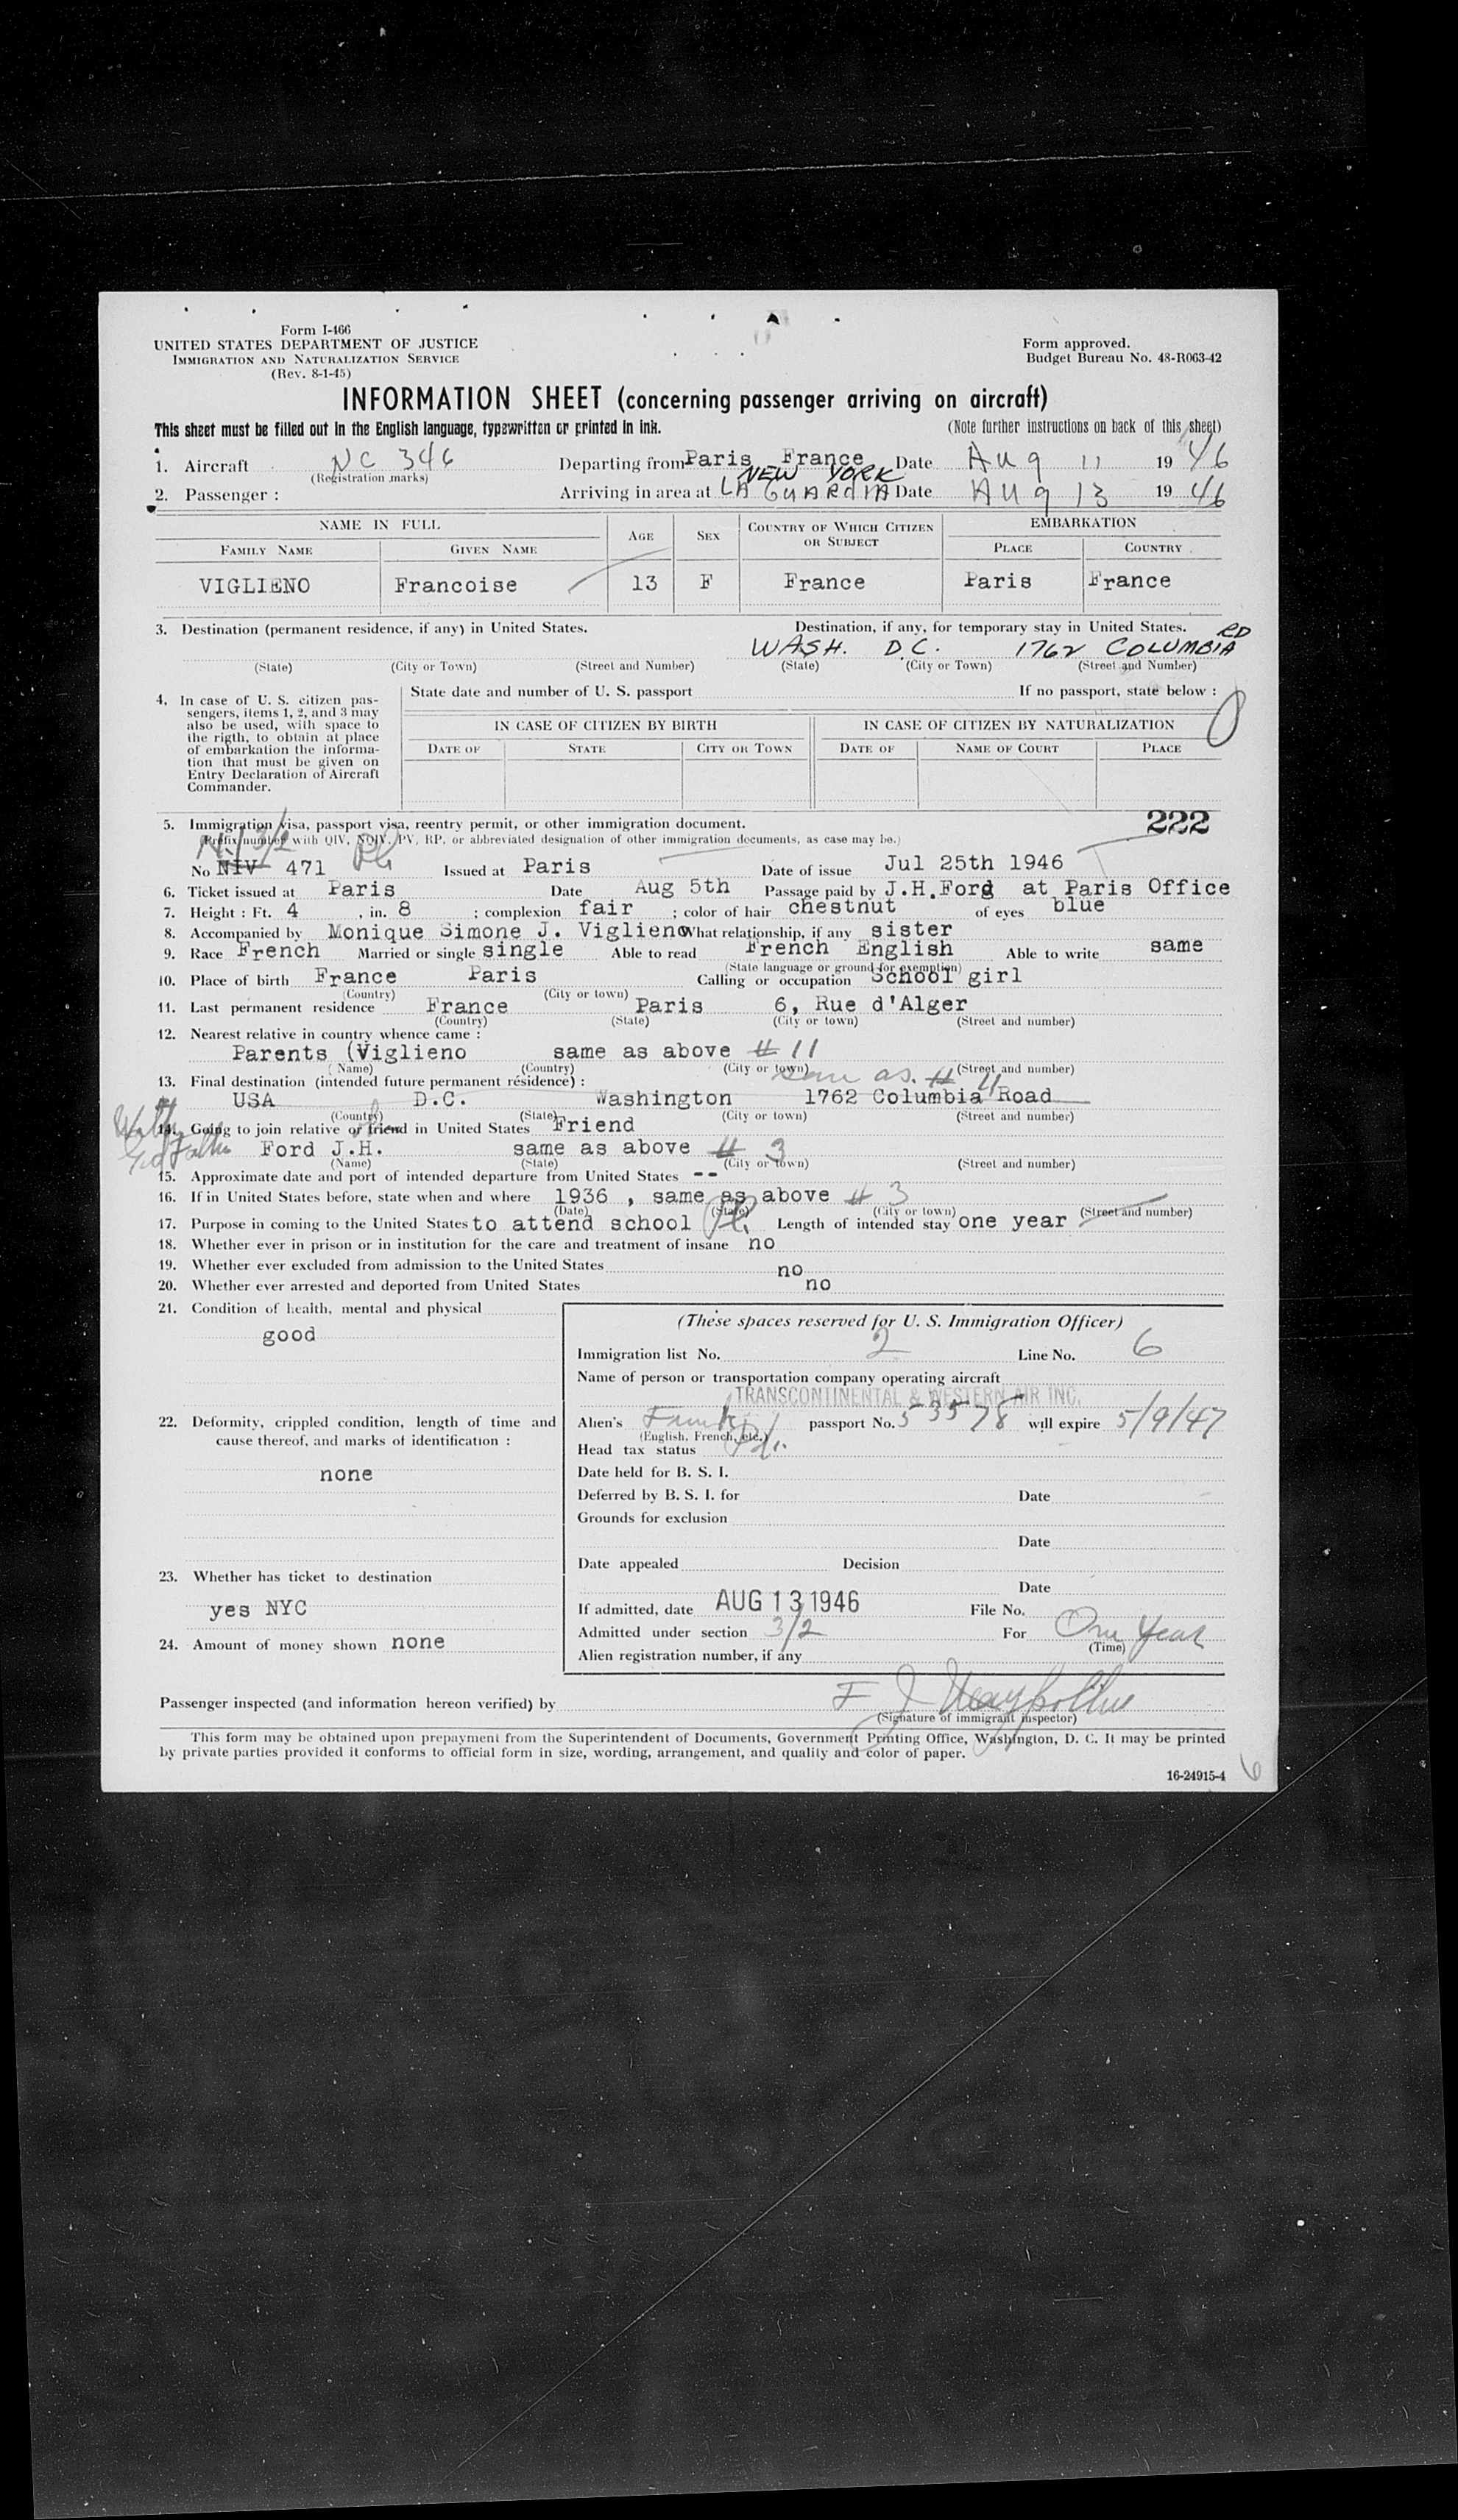 Form I-466
UNITED STATES DEPARTMENT OF JUSTICE
IMMIGRATION AND NATURALIZATION SERVICE
(Rev. 8-1-45)
Form approved.
Budget Bureau No. 48-R063-42
INFORMATION SHEET (concerning passenger arriving on aircraft)
This sheet must be filled out in the English language, typewritten or printed in ink. (Note further instructions on back of this sheet)
1. Aircraft NC 346 Departing from Paris France Date Aug 11 1946
(Registration marks) NEW YORK
2. Passenger : Arriving in area at LA GUARDIA Date Aug 13 1946
NAME IN FULL AGE SEX COUNTRY OF WHICH CITIZEN OR SUBJECT EMBARKATION
FAMILY NAME GIVEN NAME PLACE COUNTRY
VIGLIENO Francoise 13 F France Paris France
3. Destination (permanent residence, if any) in United States. Destination, if any, for temporary stay in United States.
WASH. D.C. 1762 COLUMBIA RD
(State) (City or Town) (Street and Number) (State) (City or Town) (Street and Number)
4. In case of U. S. citizen pas-
sengers, items 1, 2, and 3 may
also be used, with space to
the rigth, to obtain at place
of embarkation the informa-
tion that must be given on
Entry Declaration of Aircraft
Commander.
State date and number of U. S. passport If no passport, state below :
IN CASE OF CITIZEN BY BIRTH IN CASE OF CITIZEN BY NATURALIZATION
DATE OF STATE CITY OR TOWN DATE OF NAME OF COURT PLACE
222
5. Immigration visa, passport visa, reentry permit, or other immigration document.
(Prefix number with QIV, NQIV, PV, RP, or abbreviated designation of other immigration documents, as case may be.)
3/2
No NIV 471 Issued at Paris Date of issue Jul 25th 1946
6. Ticket issued at Paris Date Aug 5th Passage paid by J.H.Ford at Paris Office
7. Height : Ft. 4 , in. 8 ; complexion fair ; color of hair chestnut of eyes blue
8. Accompanied by Monique Simone J. Viglieno What relationship, if any sister
9. Race French Married or single single Able to read French English Able to write same
(State language or ground for exemption)
10. Place of birth France Paris Calling or occupation School girl
(Country) (City or town)
11. Last permanent residence France Paris 6, Rue d'Alger
(Country) (State) (City or town) (Street and number)
12. Nearest relative in country whence came :
Parents (Viglieno same as above # 11
(Name) (Country) (City or town) (Street and number)
13. Final destination (intended future permanent résidence) : same as # 11
USA D.C. Washington 1762 Columbia Road
(Country) (State) (City or town) (Street and number)
14. Going to join relative or friend in United States Friend
Ford J.H. same as above # 3
(Name) (State) (City or town) (Street and number)
15. Approximate date and port of intended departure from United States --
16. If in United States before, state when and where 1936 , same as above # 3
(Date) (State) (City or town) (Street and number)
17. Purpose in coming to the United States to attend school Length of intended stay one year
18. Whether ever in prison or in institution for the care and treatment of insane no
19. Whether ever excluded from admission to the United States no
20. Whether ever arrested and deported from United States no
21. Condition of health, mental and physical
good
22. Deformity, crippled condition, length of time and
cause thereof, and marks of identification :
none
23. Whether has ticket to destination
yes NYC
24. Amount of money shown none
(These spaces reserved for U. S. Immigration Officer)
Immigration list No. 2 Line No. 6
Name of person or transportation company operating aircraft
TRANSCONTINENTAL & WESTERN AIR INC.
Alien's passport No. 53578 will expire 5/9/47
(English, French, etc.)
Head tax status
Date held for B. S. I.
Deferred by B. S. I. for Date
Grounds for exclusion
Date
Date appealed Decision
Date
If admitted, date AUG 13 1946 File No.
Admitted under section 3/2 For One Year
(Time)
Alien registration number, if any
Passenger inspected (and information hereon verified) by
(Signature of immigrant inspector)
This form may be obtained upon prepayment from the Superintendent of Documents, Government Printing Office, Washington, D. C. It may be printed
by private parties provided it conforms to official form in size, wording, arrangement, and quality and color of paper.
16-24915-4
6